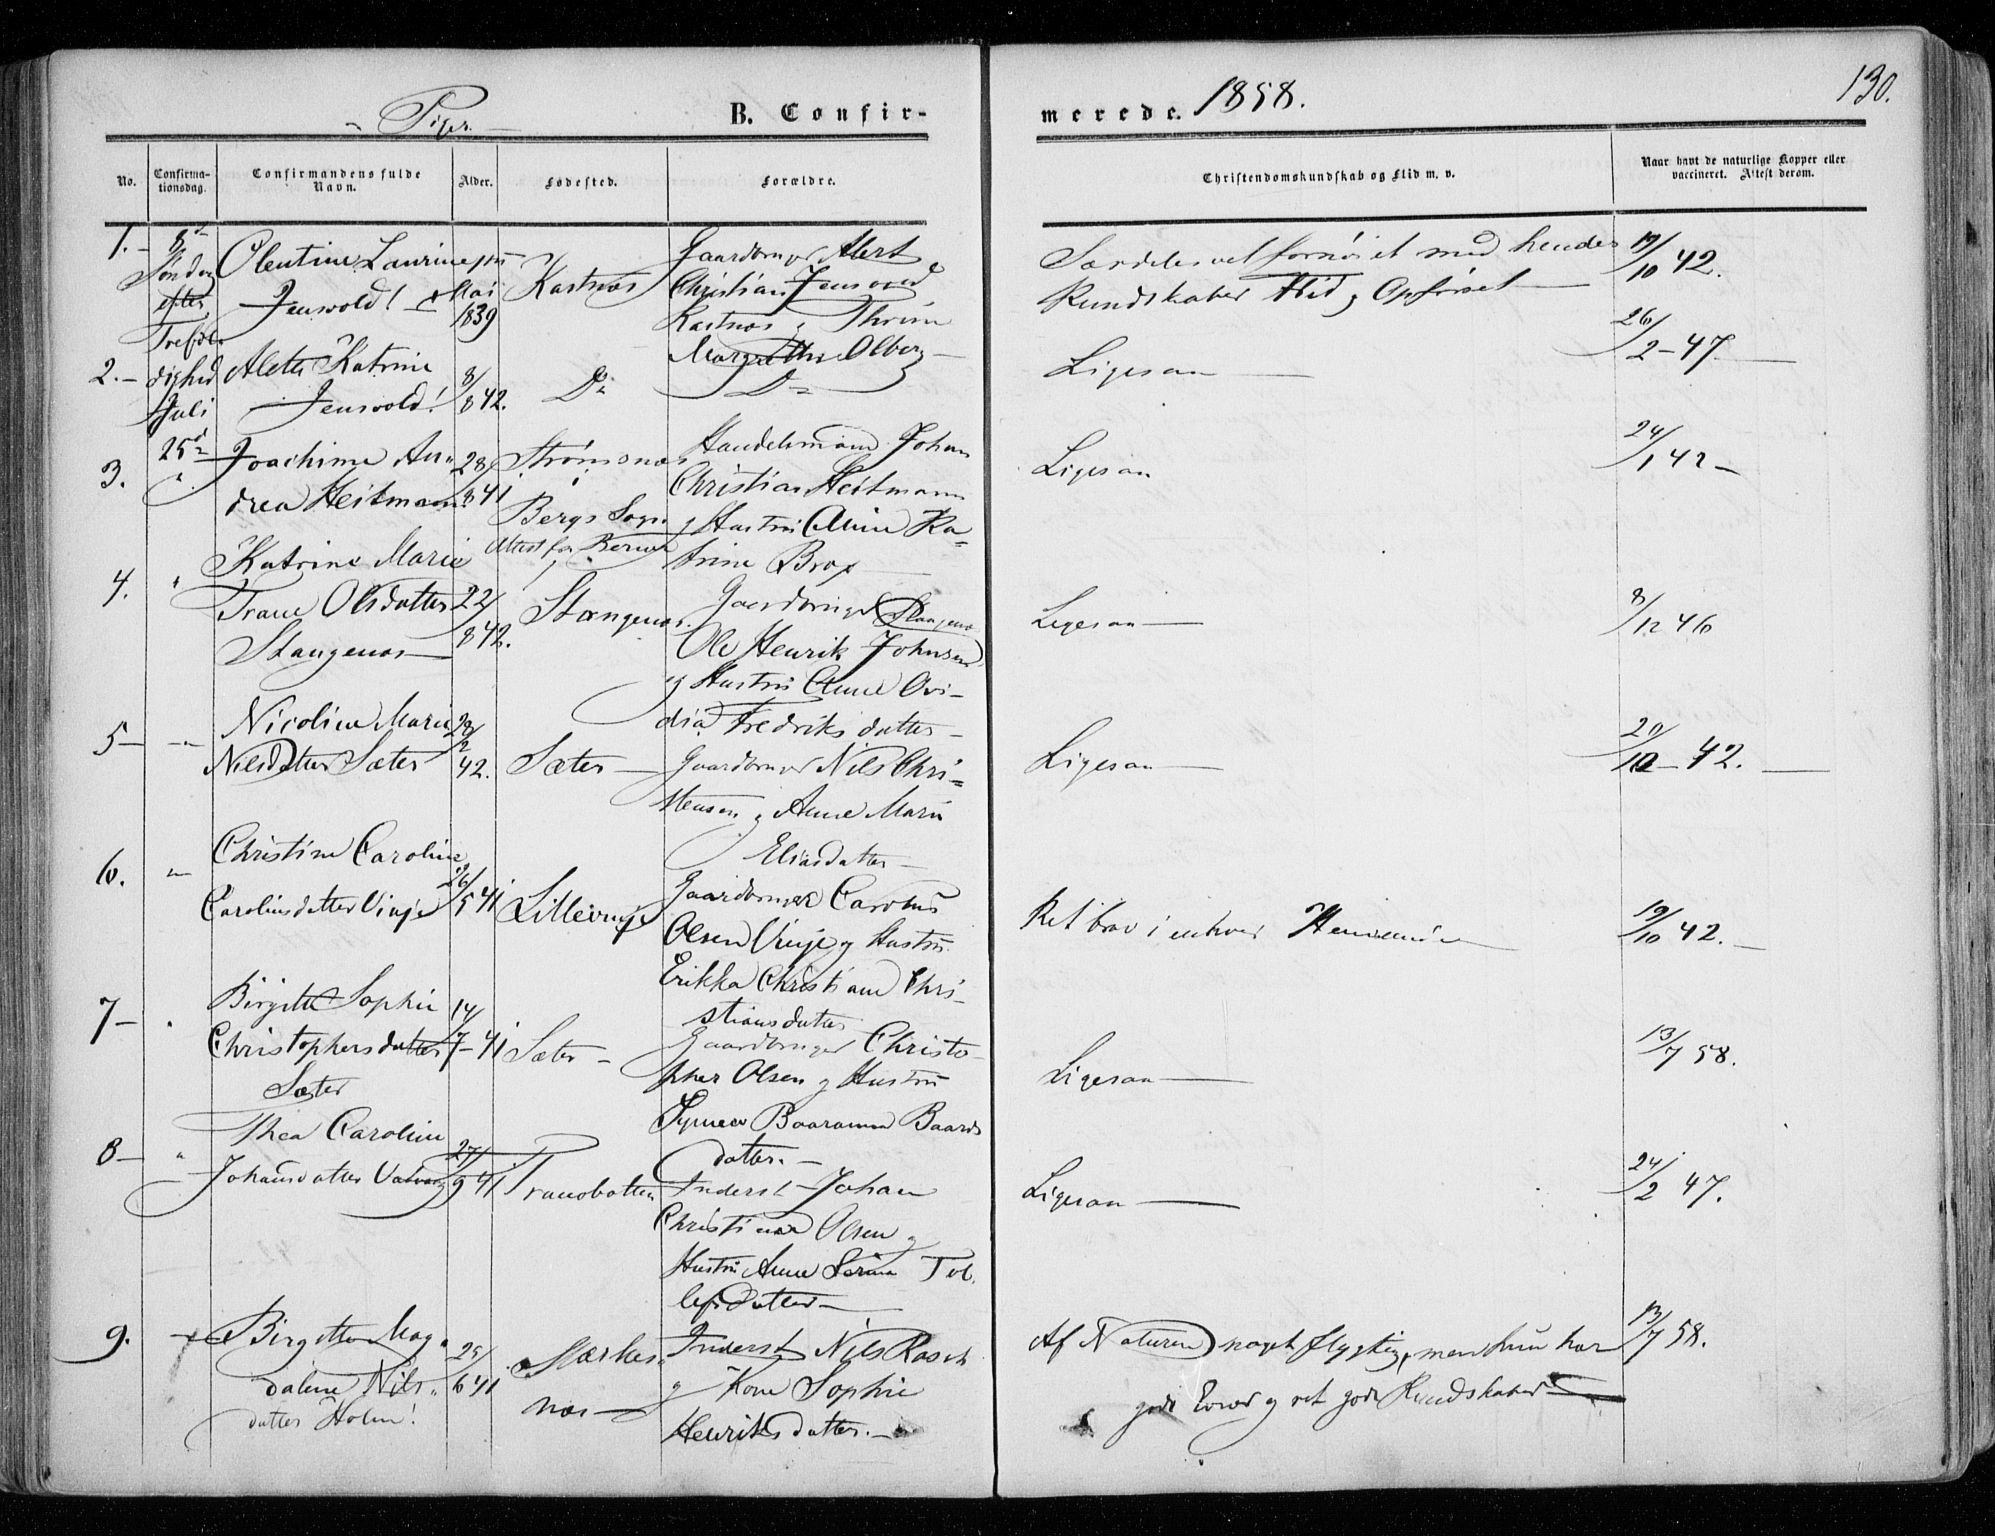 130.
Piger.
B. Confir-
merede. 1858.
No.
Confirma-
tionsdag.
Confirmandens fulde
Navn.
Alder.
Fødested.
Forældre.
Christendomskundskab og Flid m. v.
Naar havt de naturlige Kopper eller
vaccineret. Attest derom.
1. 8de
Søndag
efter
Trefol-
dighed
Juli
25de
Olentine Laurine
Jensvold!
Mai
1839
Kastnæs
Gaardbruger Alert
Christian Jensvold
Kastnæs og
Margrethe Olberg
Særdeles vel fornøiet med hendes
Kundskaber Flid og Opførsel
19/10 42.
2. Alette Katrine
Jensvold!
8/8 42.
Do
Do
Ligesaa
26/2 - 47
3. " Joachime An-
drea Heitmann
28/8 41
Strømsnæs
i
Bergs Sogn
Attest fra
Handelsmand Johan
Christian Heitmann
og Hustru Anne Ka-
trine Brox
Ligesaa
24/1 42 -
4. " Katrine Marie
Trane Olsdatter
Stangenæs
22/8 42.
Stangenæs.
Gaardbruger Stangenæs
Ole Henrik Johnsen
og Hustru Anne Ovi-
dia Fredriksdatter
Ligesaa
8/12 46
5 - " Nicoline Marie
Nilsdatter Sæter
28/2 42.
Sæter
Gaardbruger Nils Chri-
stensen og Anne Marie
Eliasdatter
Ligesaa
20/10 - 42.
6. " Christine Caroline
Carolinsdatter Vinje
26/5 41
Lillevinje
Gaardbruger Carolius
Olsen Vinje og Hustru
Erikka Christiane Chri-
stiansdatter
Ret brav i enhver Henseende
19/10 42.
7 - " Birgitte Sophie
Christophersdatter
Sæter
14/7 - 41
Sæter -
Gaardbruger Christo-
pher Olsen og Hustru
Baards
datter. -
Ligesaa
13/7 58.
8 - " Thea Caroline
Johansdatter
27/9 41
Tranobotten
Inderst Johan
Christian Olsen og
Hustru Anne
lefsdatter
Ligesaa
24/2 47.
9. Birgitte Mag-
dalene Nils-
datter Holm!
25/6 41
næs
Inderst Nils Rasch
og Kone Sophie
Henriksdatter. -
Af Naturen noget flygtig, men hun har
gode Evner og ret gode Kundskaber
13/7 58.